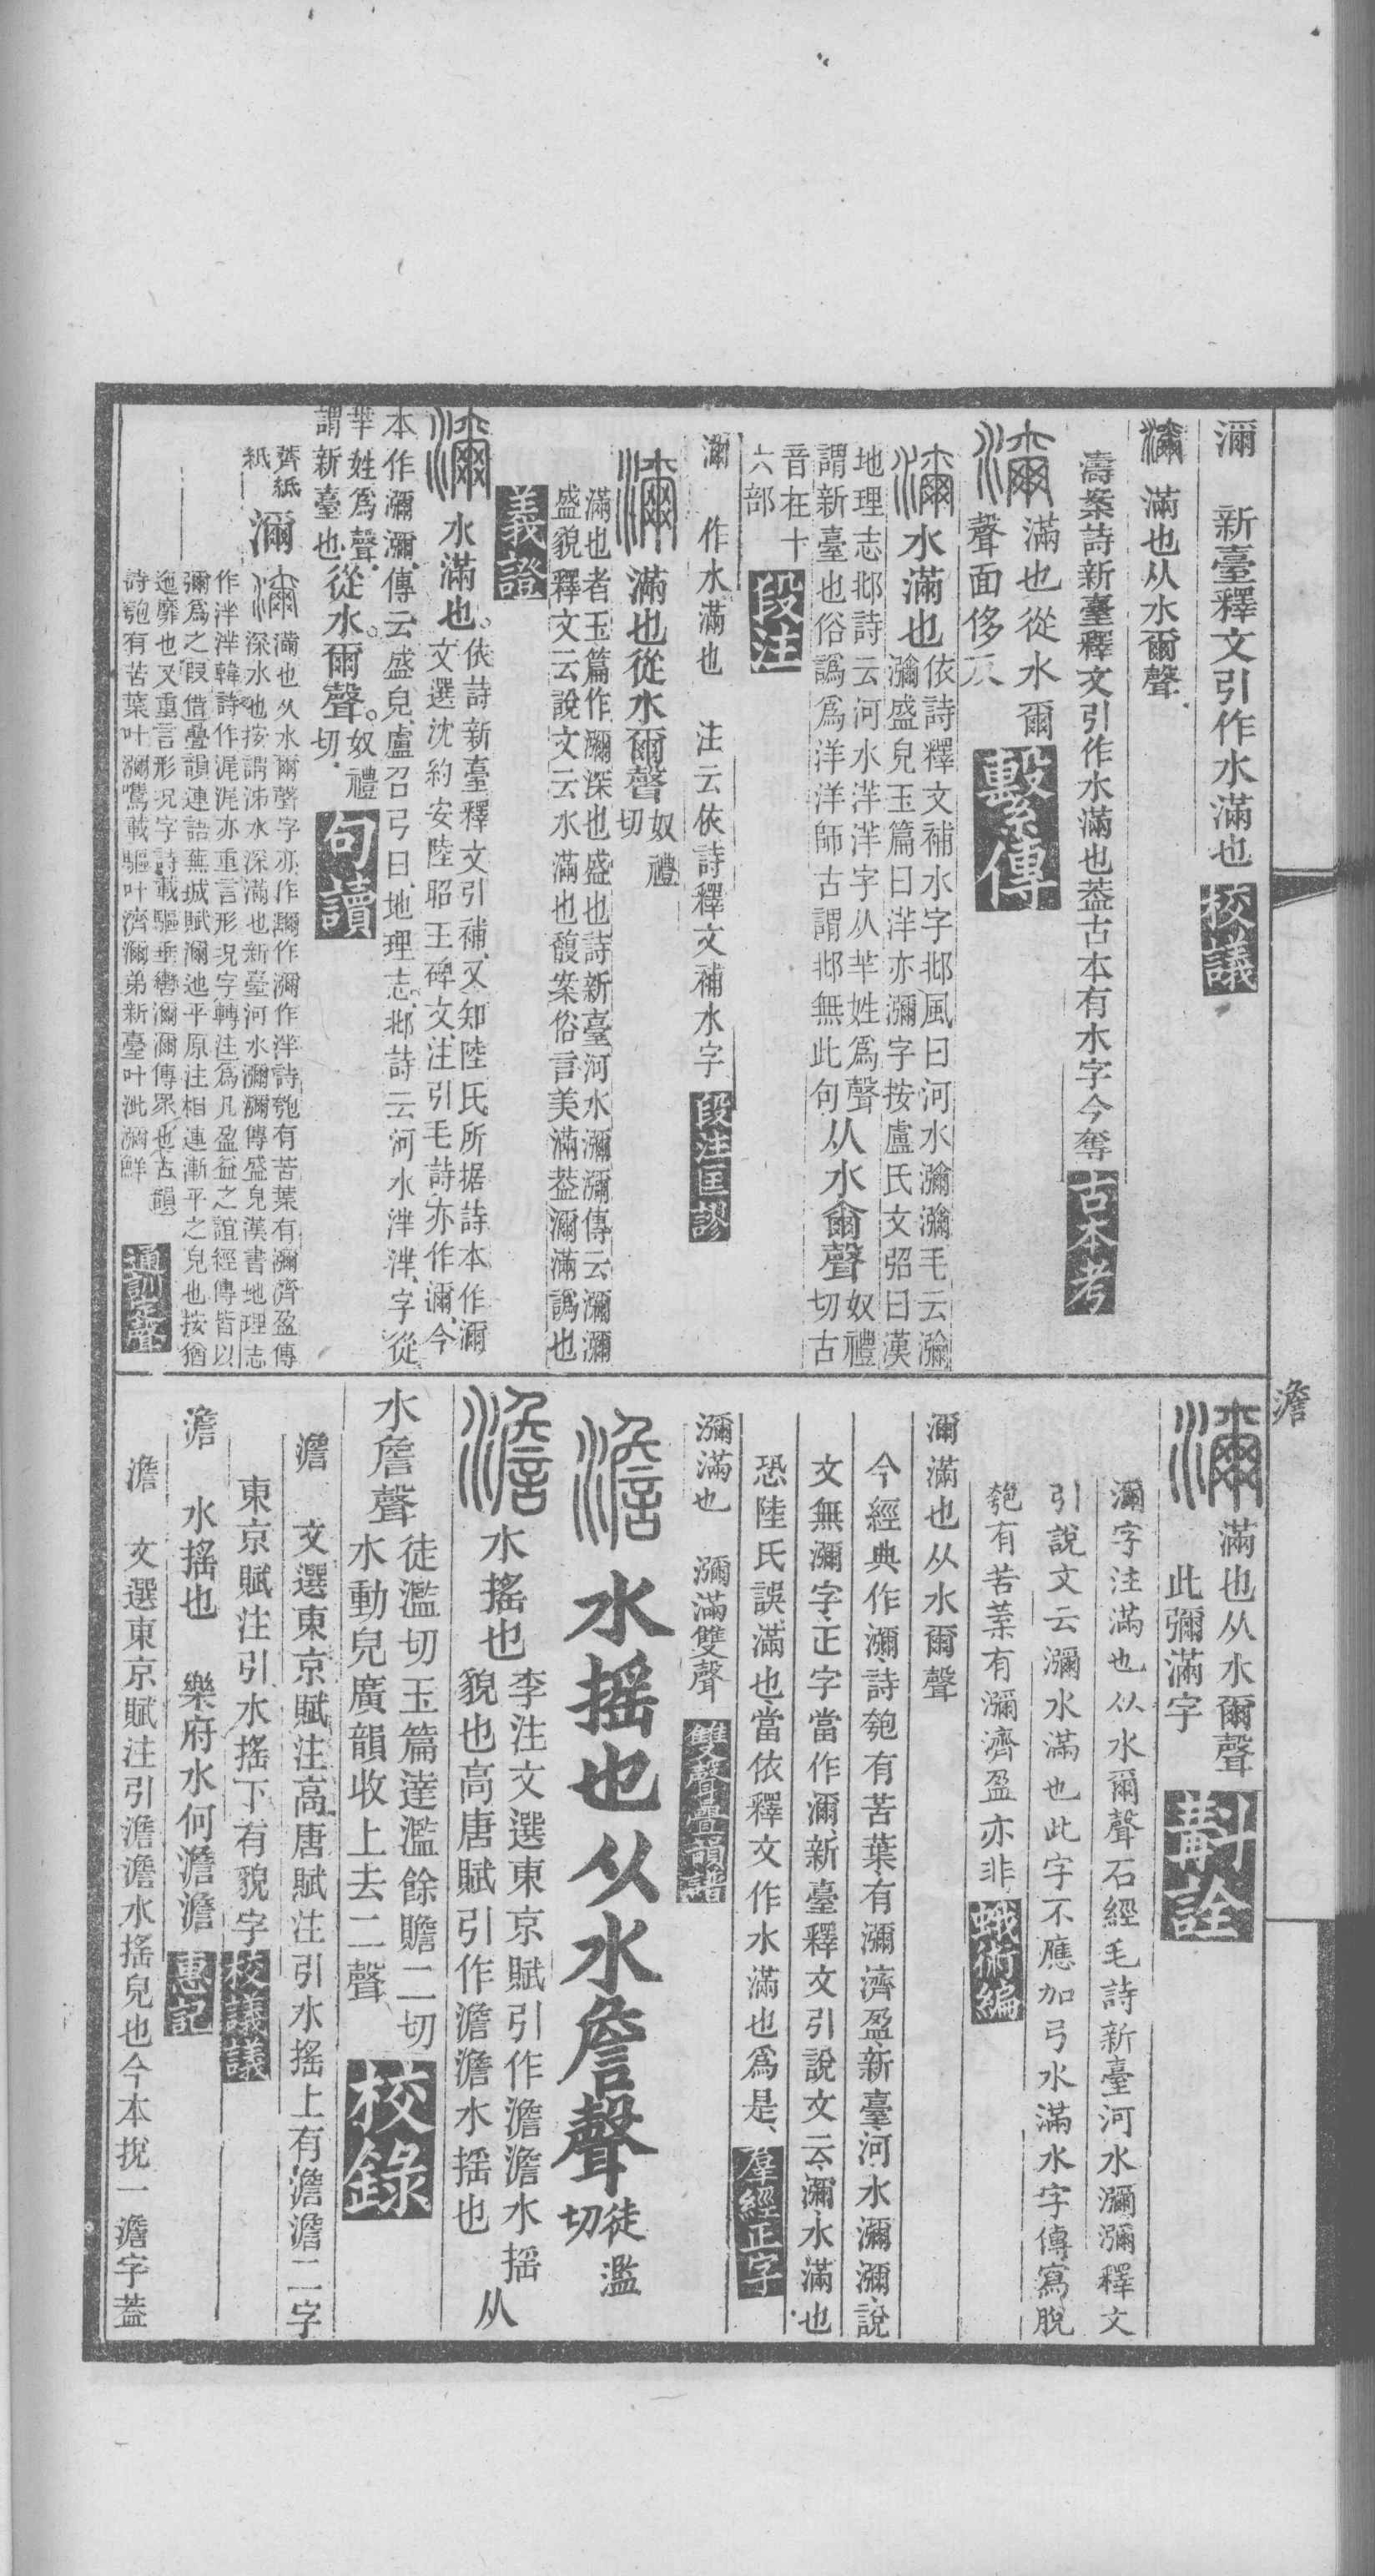 濔　新臺釋文引作水滿也　校議
濔　滿也从水爾聲
濤案詩新臺釋文引作水滿也葢古本有水字今奪　古本考
濔　滿也從水爾
聲面侈反　繫傳
濔　水滿也
依詩釋文補水字邶風曰河水瀰瀰毛云瀰
瀰盛皃玉篇曰洋亦瀰字按盧氏文弨曰漢
地理志邶詩云河水洋洋字从芈姓爲聲
謂新臺也俗譌爲洋洋師古謂邶無此句
从水爾聲
奴禮切古
音在十
六部　段注
濔　作水滿也　注云依詩釋文補水字　段注匡謬
濔　滿也從水爾聲
奴禮
切
滿也者玉篇作瀰深也盛也詩新臺河水瀰瀰傳云瀰瀰
盛貌釋文云說文云水滿也馥案俗言美滿葢濔滿譌也
義證
濔　水滿也。
依詩新臺釋文引補、又知陸氏所据詩本作濔
文選沈約安陸昭王碑文、注引毛詩亦作濔、今
本作瀰瀰、傳云盛皃、盧召弓曰、地理志、邶詩云河水洋洋、字從
芈姓爲聲、
謂新臺也
從水。爾聲。
奴禮
切、　句讀
薺紙
紙
濔　濔
滿也从水爾聲字亦作瀰作瀰作泮詩匏有苦葉有瀰濟盈傳
深水也按謂沛水深滿也新臺河水瀰瀰傳盛皃漢書地理志
作泮泮韓詩作浘浘亦重言形況字轉注爲凡盈益之誼經傳皆以
彌爲之叚借疊韻連語蕪城賦濔迆平原注相連漸平之皃也按猶
迤靡也又重言形況字詩載驅垂轡濔濔傳眾也古韻
詩匏有苦葉叶瀰鷕載驅叶濟濔弟新臺叶泚瀰鮮
通訓定聲
澹
濔　滿也从水爾聲
此彌滿字　斠詮
濔字注滿也从水爾聲石經毛詩新臺河水瀰瀰釋文
引說文云瀰水滿也此字不應加弓水滿水字傳寫脫
匏有苦葉有瀰濟盈亦非　蛾術編
濔滿也从水爾聲
今經典作瀰詩匏有苦葉有瀰濟盈新臺河水瀰瀰說
文無瀰字正字當作濔新臺釋文引說文云瀰水滿也
恐陸氏誤滿也當依釋文作水滿也爲是、　羣經正字
瀰滿也　瀰滿雙聲　雙聲疊韻譜
澹　水搖也从水詹聲
徒濫
切
澹　水搖也
李注文選東京賦引作澹澹水搖
貌也高唐賦引作澹澹水搖也
从
水詹聲
徒濫切玉篇達濫餘贍二切
水動皃廣韻收上去二聲　校錄
澹　文選東京賦注高唐賦注引水搖上有澹澹二字
東京賦注引水搖下有貌字　校議議
澹　水搖也　樂府水何澹澹　惠記
澹　文選東京賦注引澹澹水搖皃也今本捝一澹字葢